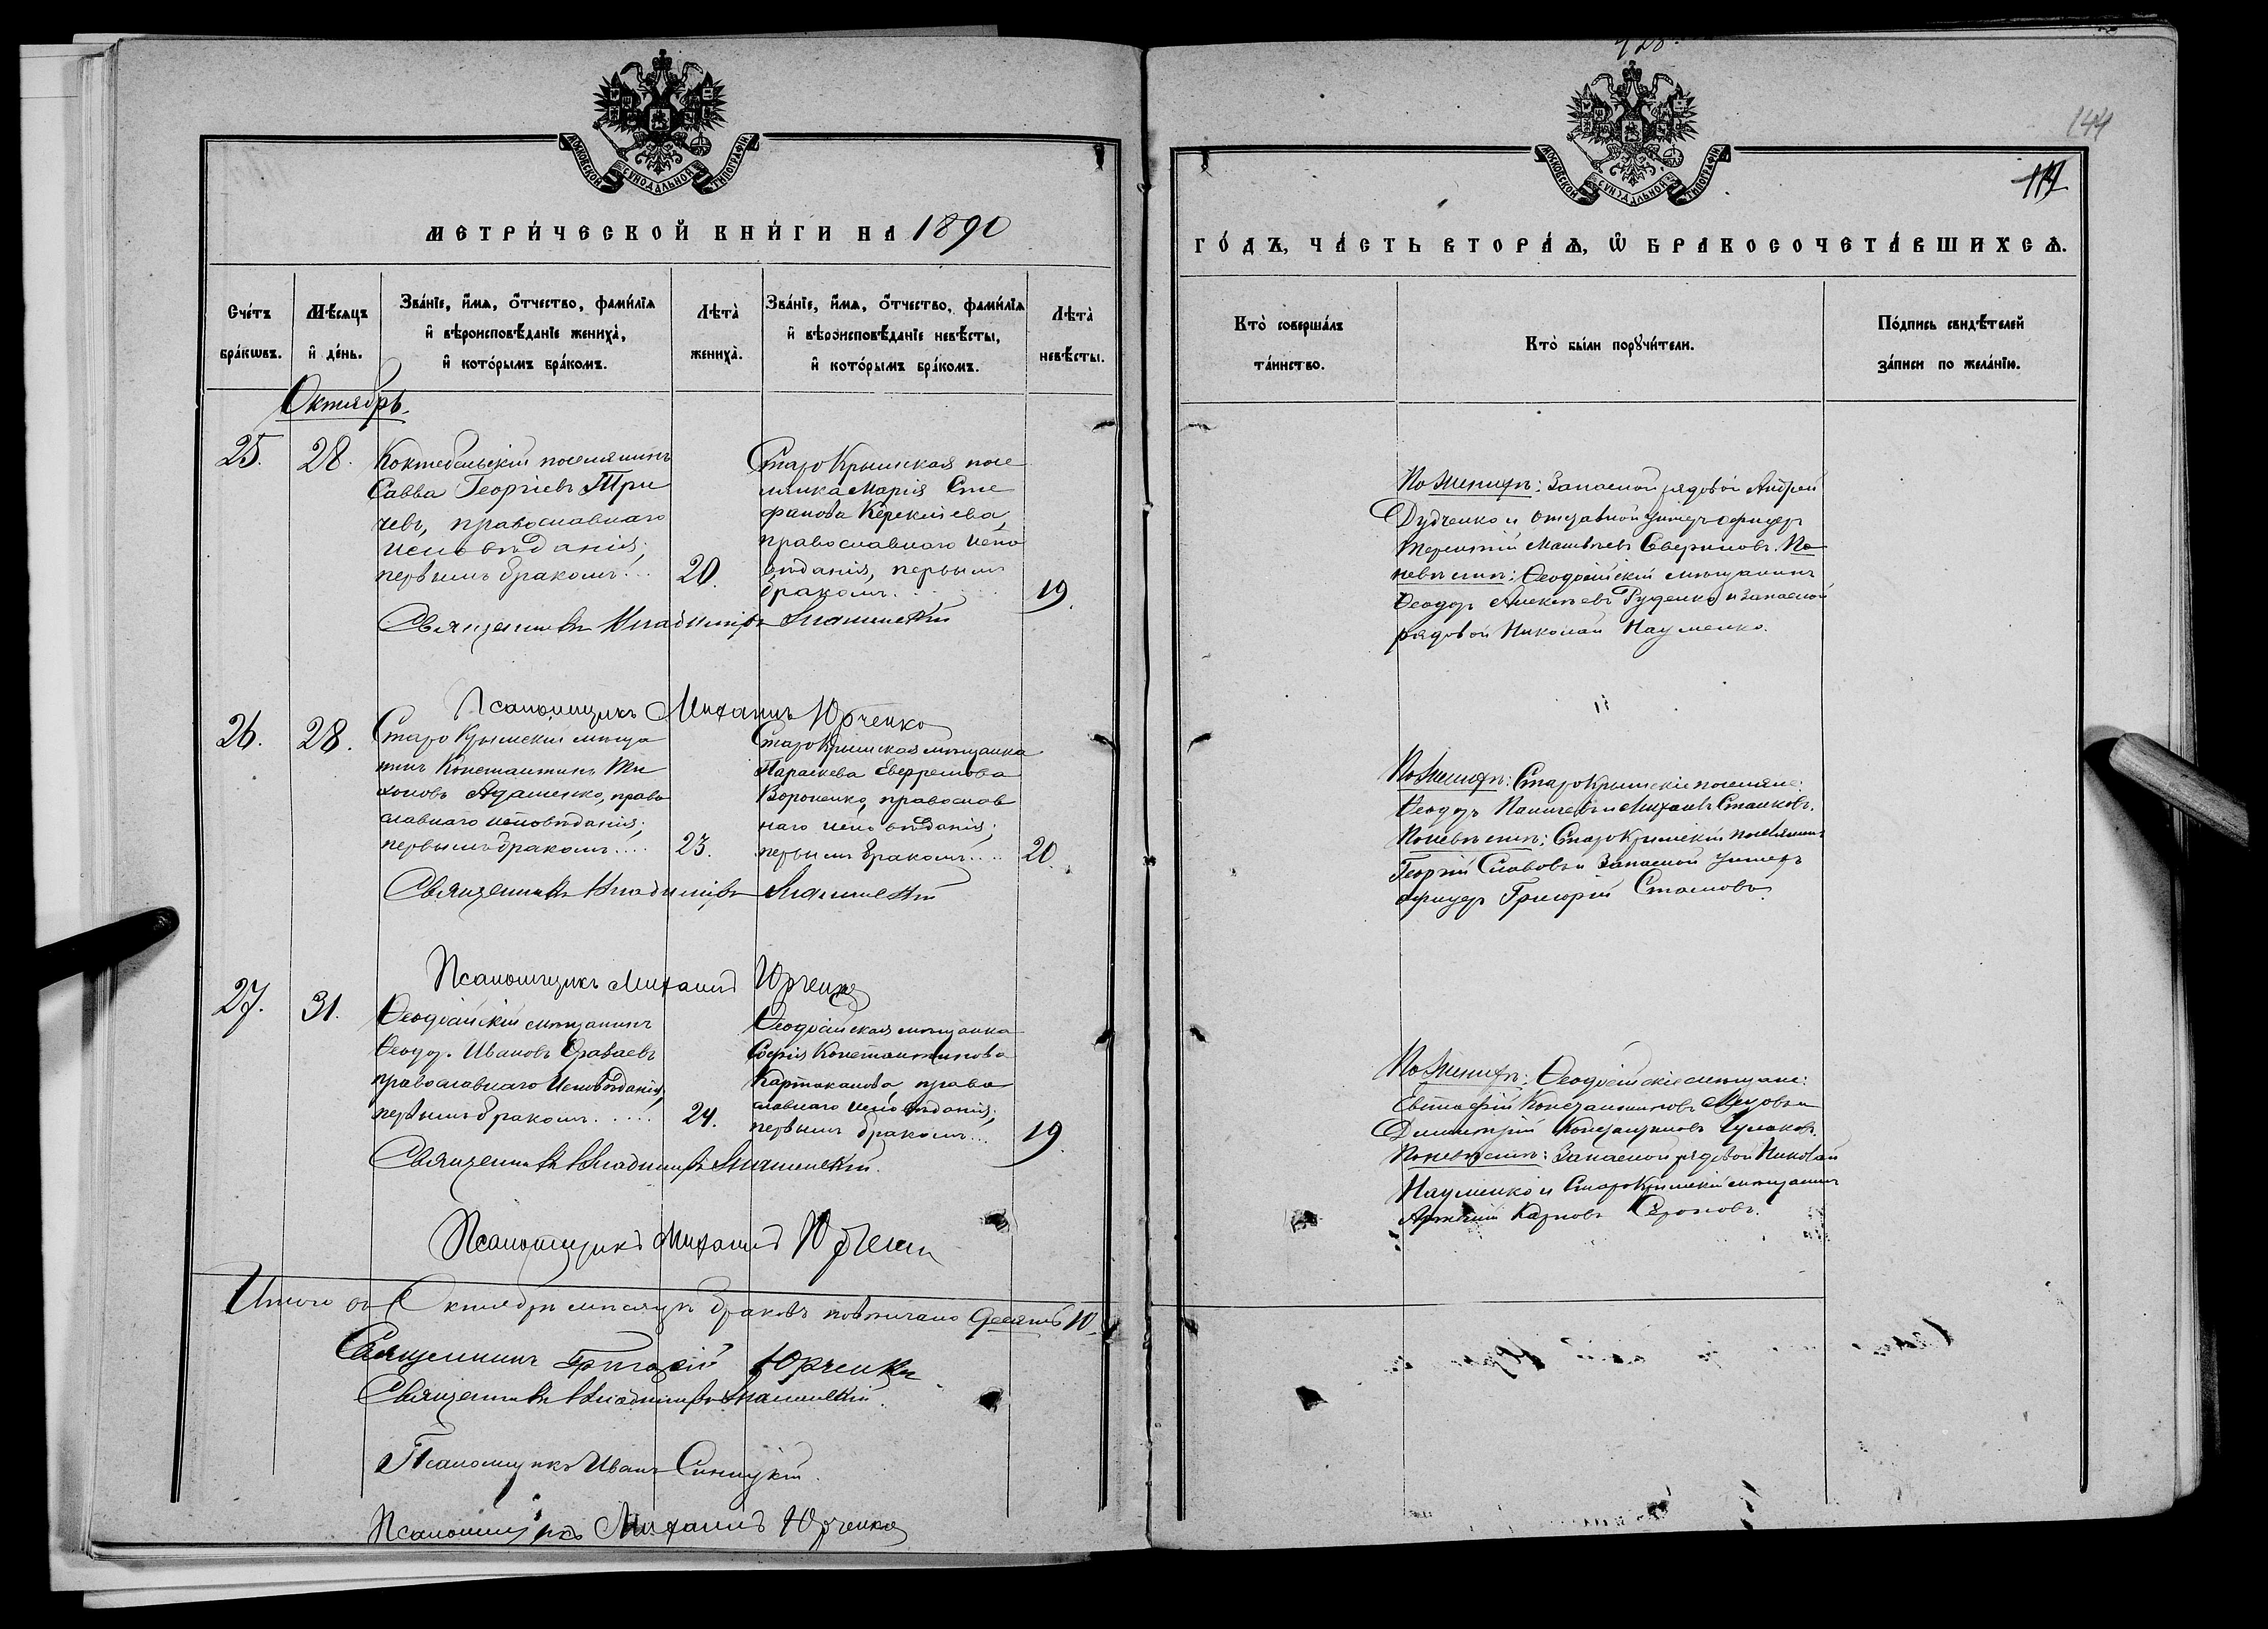 МОСКОВСКОЙ СѴНОДАЛЬНОЙ ТИПОГРАФІИ
МЕТРИ́ЧЕСКОЙ КНИ́ГИ НА 1890
Сче́тъ бра́кѡвъ.
Мѣ́сяцъ и҆ де́нь.
Зва́нїе, и҆́мѧ, о҆́тчество, фами́лїѧ
и҆ вѣроисповѣ́данїе жениха̀,
и҆ кото́рымъ бра́комъ.
Лѣта̀ жениха̀.
Зва́нїе, и҆́мѧ, о҆́тчество, фами́лїѧ
и҆ вѣроисповѣ́данїе невѣ́сты,
и҆ кото́рымъ бра́комъ.
Лѣта̀ невѣ́сты.
Октябрь.
25.
28.
Коктебельскій поселянинъ
Савва Георгіевъ Три
чевъ, православнаго
исповѣданія;
первымъ бракомъ...
20.
СтароКрымская посе
лянка Марія Сте
фанова Керекчіева,
православнаго испо
вѣданія, первымъ
бракомъ......
19.
Священникъ Владиміръ
Псаломщикъ Михаилъ Юрченко
26.
28.
СтароКрымскій мѣща
нинъ Константинъ Ти
хоновъ Адаменко, право
славнаго исповѣданія;
первымъ бракомъ....
23.
СтароКрымская мѣщанка
Параскева Евфремова
Вороненко, православ
наго исповѣданія;
первымъ бракомъ....
20.
Священникъ Владиміръ
Псаломщикъ Михаилъ Юрченко
27.
31.
Ѳеодосійскій мѣщанинъ
Ѳеодоръ Ивановъ
православнаго исповѣданія,
первымъ бракомъ.....
24.
Ѳеодосійская мѣщанка
Софія Константинова
право
славнаго исповѣданія;
первымъ бракомъ...
19.
Священникъ Владиміръ
Псаломщикъ Михаилъ Юрченко
Итого въ Октябрѣ мѣсяцѣ браковъ повѣнчано десять 10.
Священникъ Григорій Юрченко
Священникъ Владиміръ
Псаломщикъ Иванъ Синицкій.
Псаломщикъ Михаилъ Юрченко
144
114
МОСКОВСКОЙ СѴНОДАЛЬНОЙ ТИПОГРАФІИ
ГО́ДЪ, ЧА́СТЬ ВТОРА́Ѧ, Ѡ҆ БРАКОСОЧЕТА́ВШИХСѦ.
Кто̀ соверша́лъ
та́инство.
Кто̀ бы́ли порꙋчи́тели.
По́дпись свидѣ́телей
за́писи по жела́нїю.
По женихѣ: Запасной рядовой Андрей
Дудченко и отставной унтеръ офицеръ
Терентій Матвѣевъ Сверчковъ. По
невѣстѣ: Ѳеодосійскій мѣщанинъ
Ѳеодоръ Алексѣевъ Руденко и запасной
рядовой Николай Науменко.
По женихѣ: СтароКрымскіе поселяне:
Ѳеодоръ Паничевъ и Михаилъ Станковъ.
По невѣстѣ: СтароКрымскій поселянинъ
Георгій Славовъ и Запасной унтеръ
офицеръ Григорій Стамовъ.
По женихѣ: Ѳеодосійскіе мѣщане:
Евстафій Константиновъ
Димитрій Константиновъ
По невѣстѣ: Запасной рядовой Николай
Науменко и СтароКрымскій мѣщанинъ
Карповъ